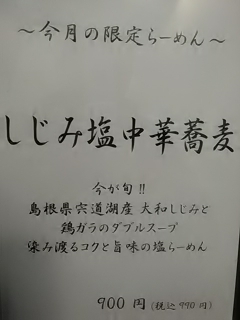 ～今月の限定らーめん～
しじみ塩中華蕎麦
今が旬!!
島根県宍道湖産 大和しじみと
鶏ガラのダブルスープ
染み渡るコクと旨味の塩らーめん
900 円 (税込 990 円)